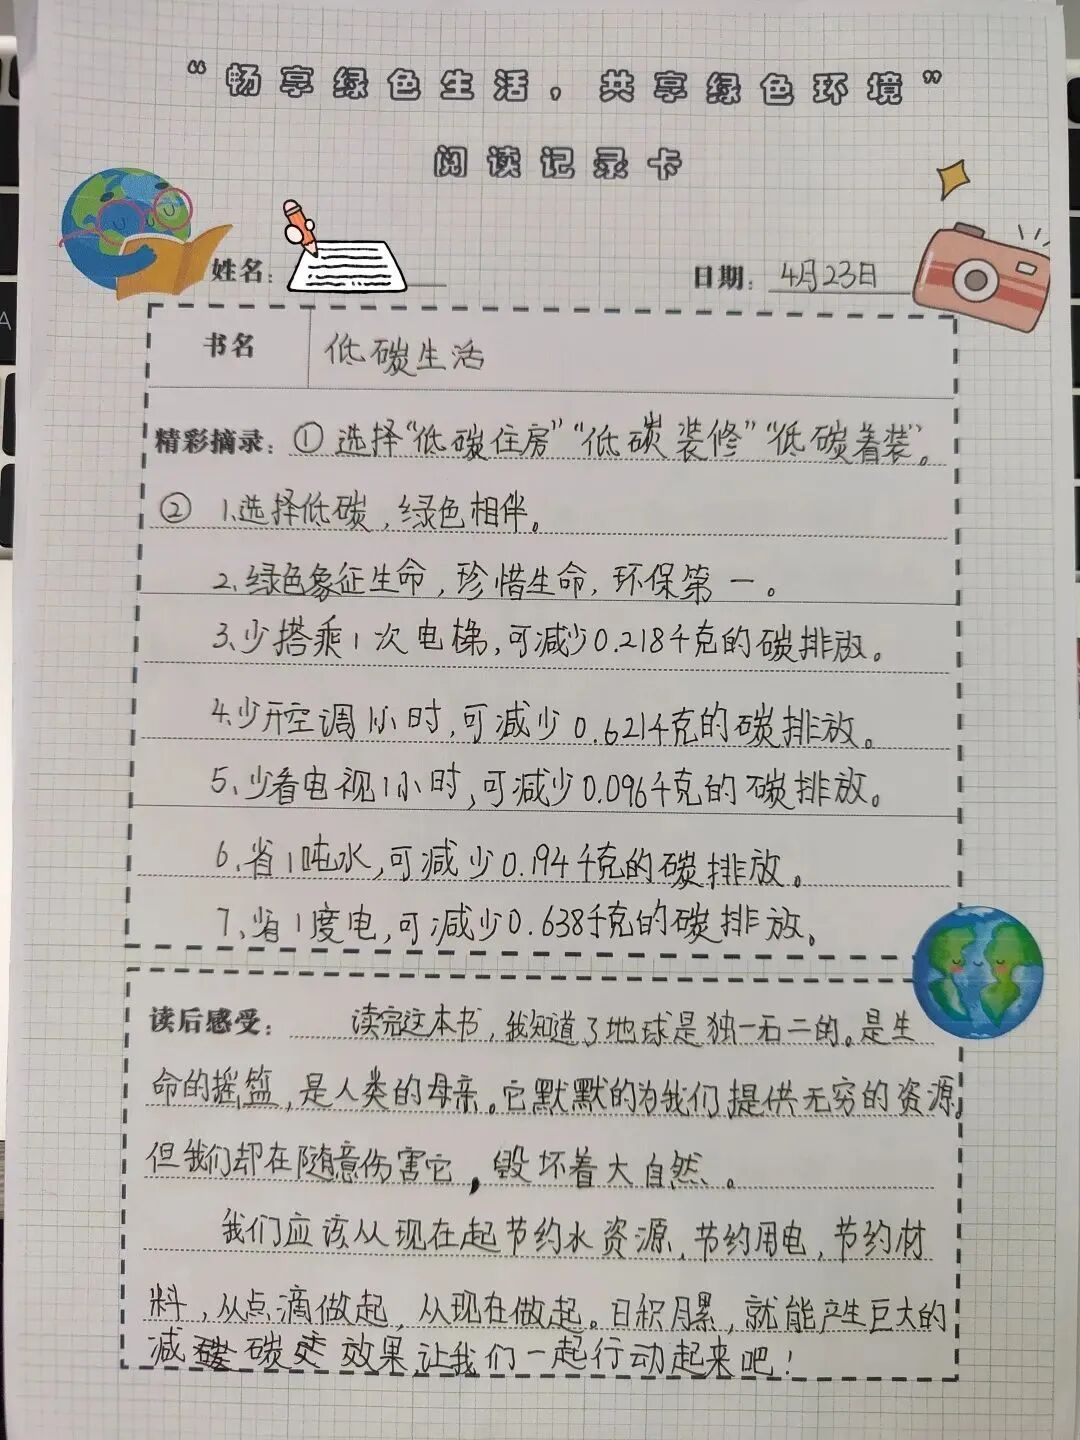 “畅享绿色生活，共享绿色环境”
阅读记录卡
姓名：
日期：4月23日
书名 低碳生活
精彩摘录：①选择“低碳住房”“低碳装修”“低碳着装”。
② 1.选择低碳，绿色相伴。
2.绿色象征生命，珍惜生命，环保第一。
3.少搭乘1次电梯，可减少0.218千克的碳排放。
4.少开空调1小时，可减少0.621千克的碳排放。
5.少看电视1小时，可减少0.096千克的碳排放。
6.省1吨水，可减少0.194千克的碳排放。
7.省1度电，可减少0.638千克的碳排放。
读后感受：读完这本书，我知道了地球是独一无二的。是生
命的摇篮，是人类的母亲。它默默的为我们提供无穷的资源，
但我们却在随意伤害它，毁坏着大自然。
我们应该从现在起节约水资源，节约用电，节约材
料，从点滴做起，从现在做起。日积月累，就能产生巨大的
减碳效果让我们一起行动起来吧！
A